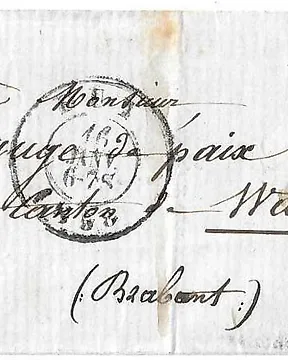 Monsieur
Juge de paix
Canton de
(Brabant)
16
6-7S